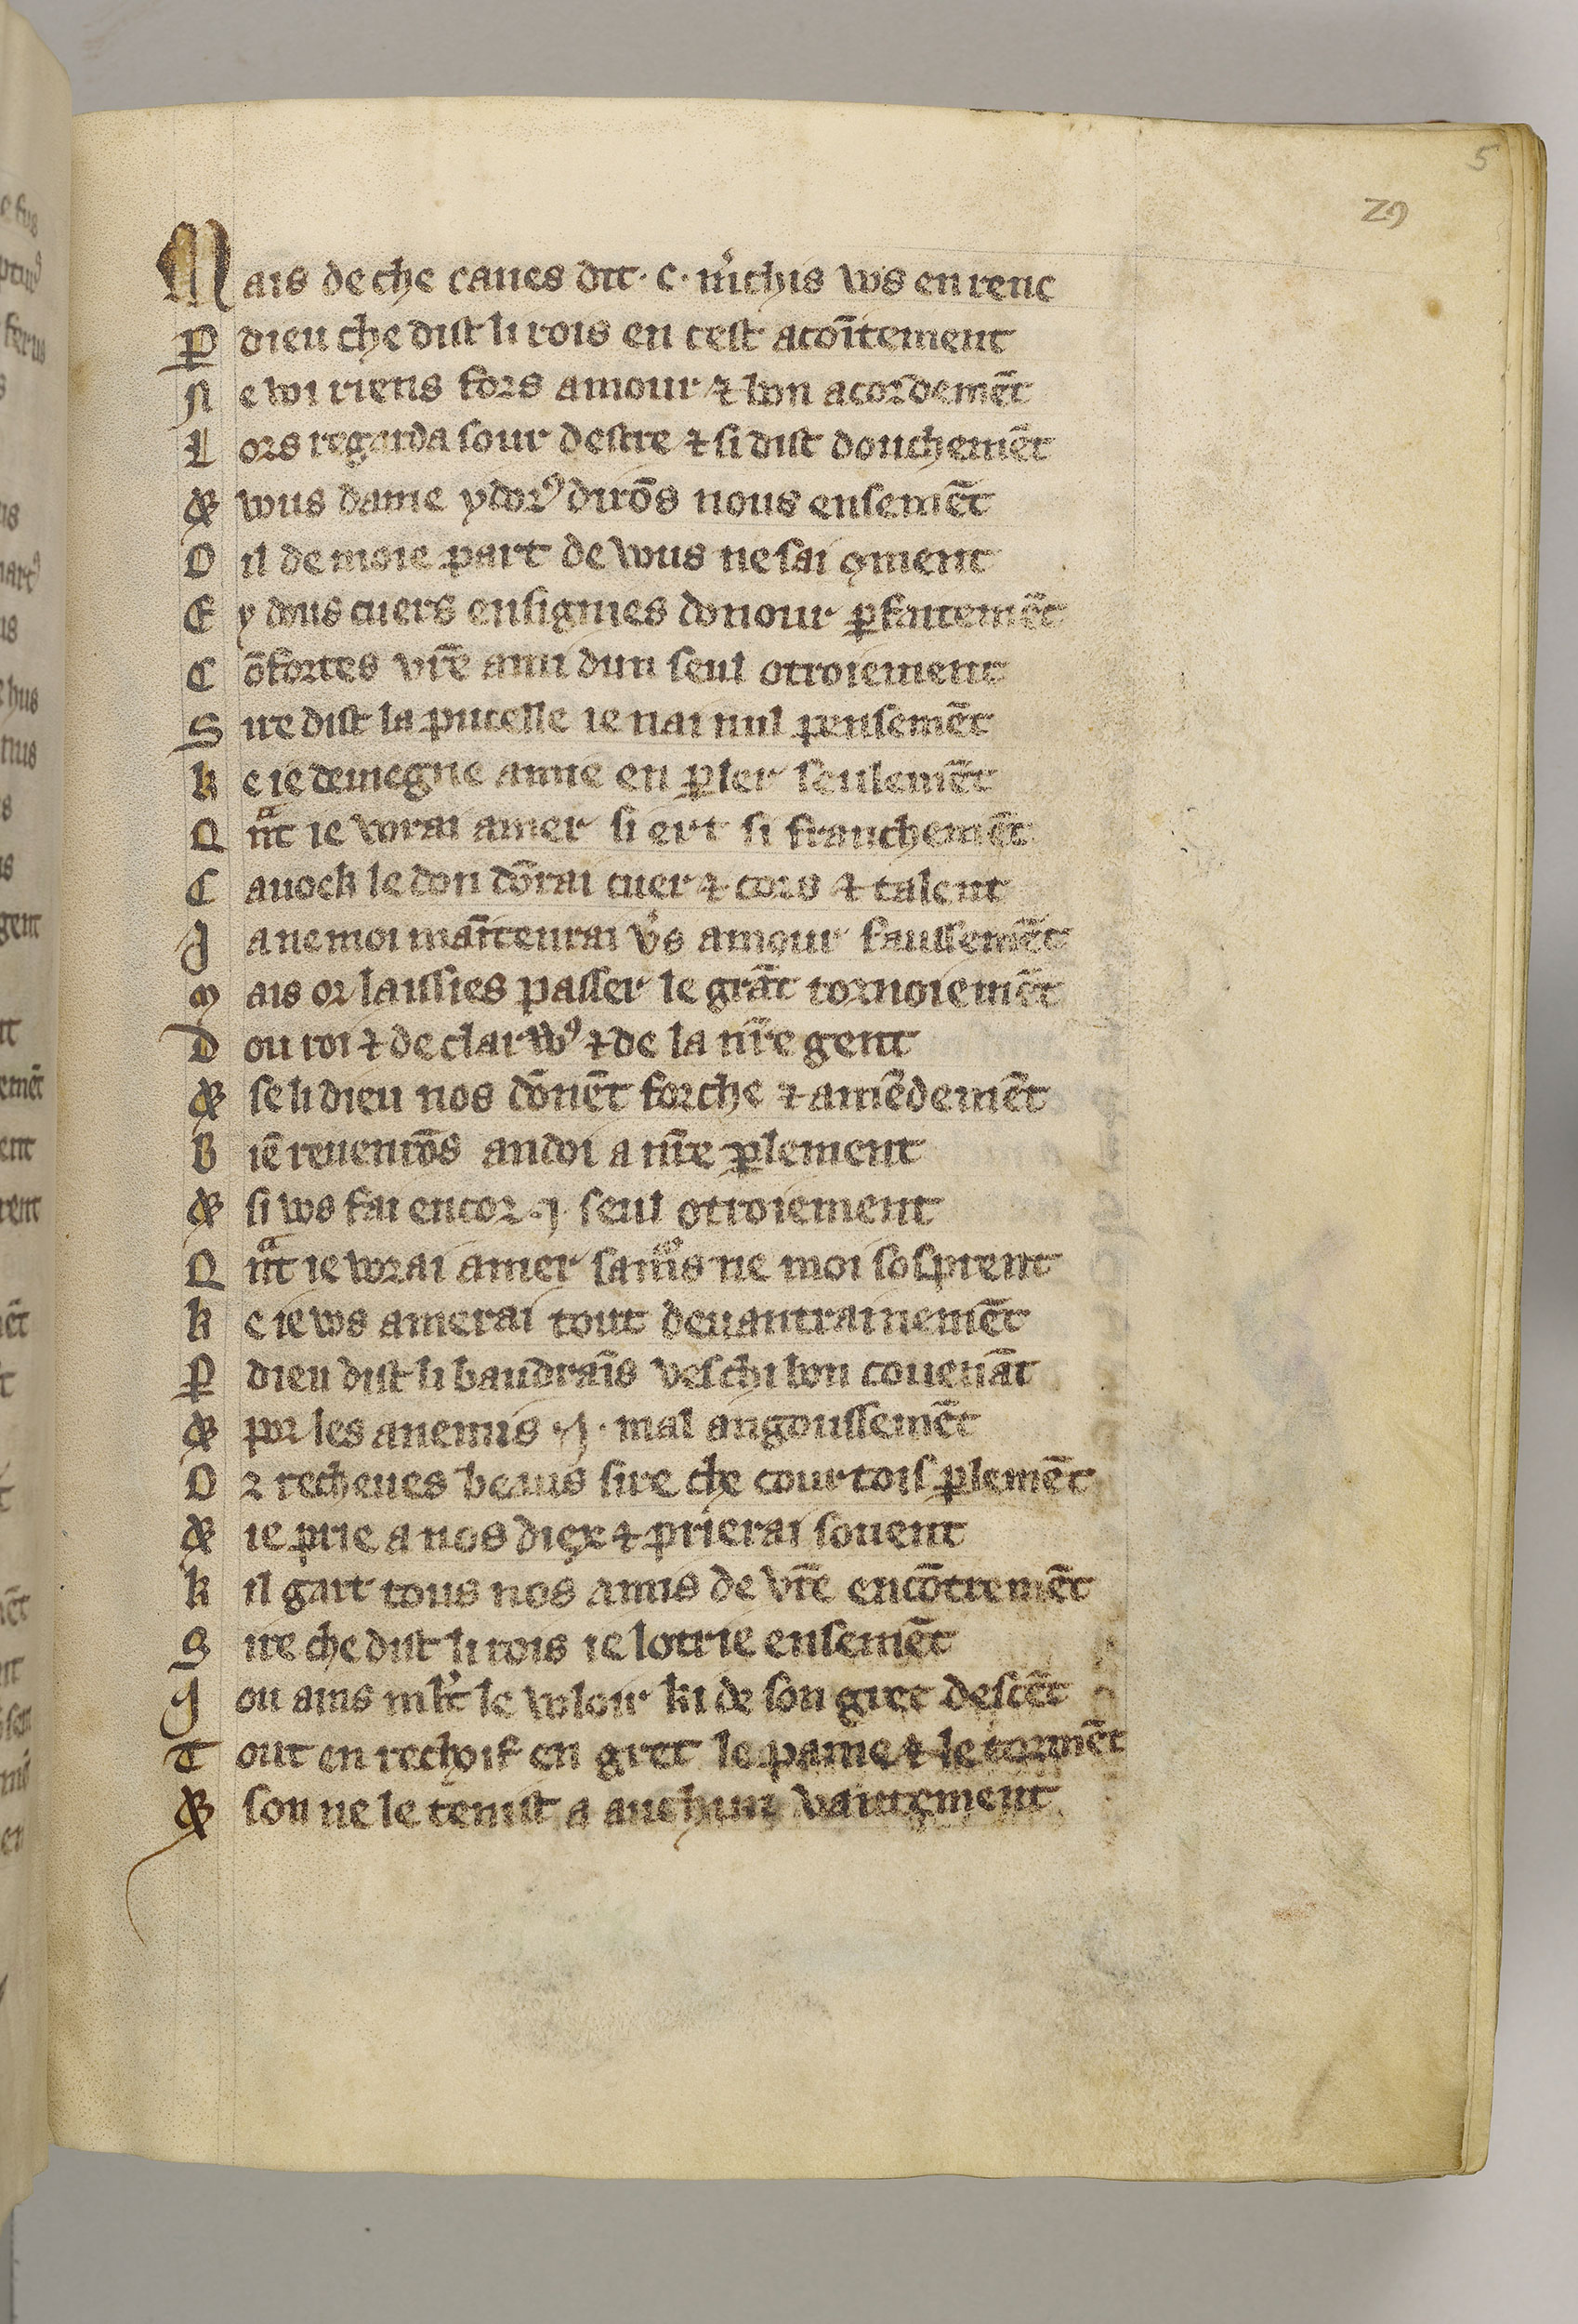 5
29
Mais de che caues dit · c · m̾chis ws en renc
ꝑ dieu che dist li rois en cest acoĩtement
Ne voi riens fors amour ⁊ bon acordemẽt
Lors regarda sour destre ⁊ si dist douchemẽt
⁊ vous dame ydorꝰ dirõs nous ensemẽt
Oil de moie part de vous ne sai ꝯment
Ey dous cuers ensignies donour ꝑfaitemẽt
Cõfortes vr̃e ami dun seul otroiement
Sire dist la pucelle ie nai nul pensemẽt
ke ie demegne amie en ꝑler seulemẽt
Qᵃnt ie vorai amer si ert si franchemẽt
Cauoek le don dõrai cuer ⁊ cors ⁊ talent
Ja ne moi maĩtenrai v̾s amour faussemẽt
Mais or laissies passer le grãt tornoiemẽt
Dou roi ⁊ de clarvꝰ ⁊ de la nr̃e gent
⁊ se li dieu nos dõnẽt forche ⁊ amẽdemẽt
Biẽ reuenrõs andoi a nr̃e ꝑlement
⁊ si ws fai encor ·j· seul otroiement
Qᵃnt ie vorai amer samoˢs ne moi sosprent
ke ie ws amerai tout deuantrainemẽt
ꝑ dieu dist li baudraĩs veschi bon couenãt
⁊ por les anemis ·j· mal angoussemẽt
Or recheues beaus sire che courtois ꝑlemẽt
⁊ ie prie a nos diex ⁊ prierai souent
kil gart tous nos amis de vr̃e encõtremẽt
Sire che dist li rois ie lotrie ensemẽt
Jou ains mlt̾ le voloir ki de son gret descẽt
Tout en rechoif en gret le paine ⁊ le tormẽt
⁊ son ne le tenist a auchun vantement